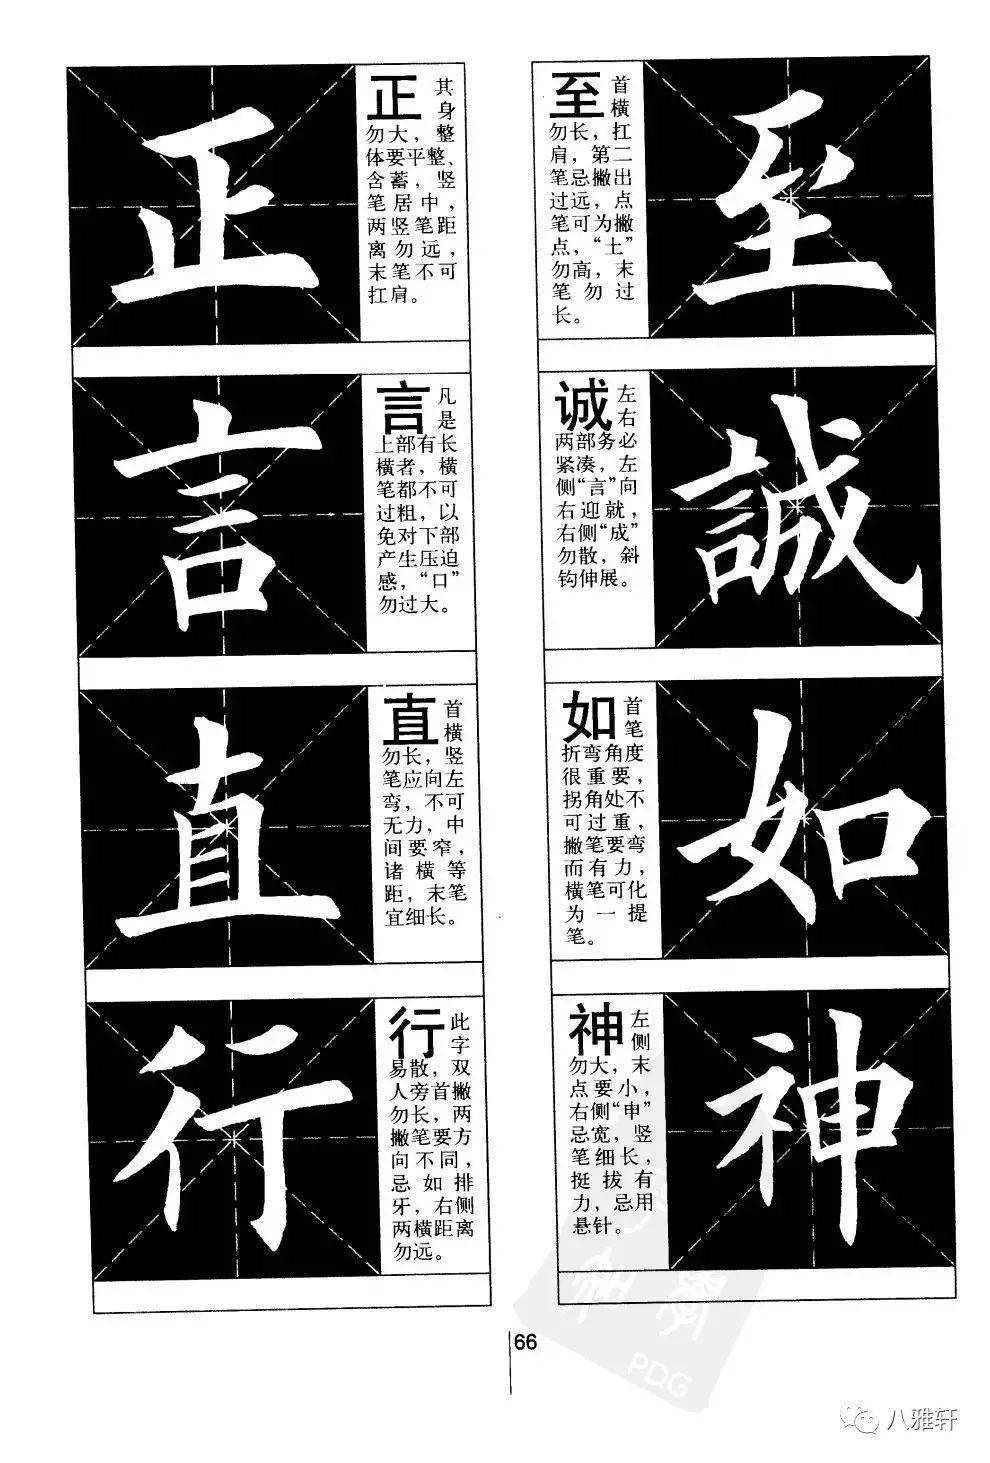 正
正 其身
勿大，整
体要平整、
含蓄，竖
笔居中，
两竖笔距
离勿远，
末笔不可
扛肩。
言
言 凡是
上部有长
横者，横
笔都不可
过粗，以
免对下部
产生压迫
感，“口”
勿过大。
直
直 首横
勿长，竖
笔应向左
弯，不可
无力，中
间要窄，
诸横等
距，末笔
宜细长。
行
行 此字
易散，双
人旁首撇
勿长，两
撇笔要方
向不同，
忌如排
牙，右侧
两横距离
勿远。
至 首横
勿长，扛
肩，第二
笔忌撇出
过远，点
笔可为撇
点，“土”
勿高，末
笔勿过
长。
至
诚 左右
两部务必
紧凑，左
侧“言”向
右迎就，
右侧“成”
勿散，斜
钩伸展。
誠
如 首笔
折弯角度
很重要，
拐角处不
可过重，
撇笔要弯
而有力，
横笔可化
为一提
笔。
如
神 左侧
勿大，末
点要小，
右侧“申”
忌宽，竖
笔细长，
挺拔有
力，忌用
悬针。
神
66
PDG
八雅轩